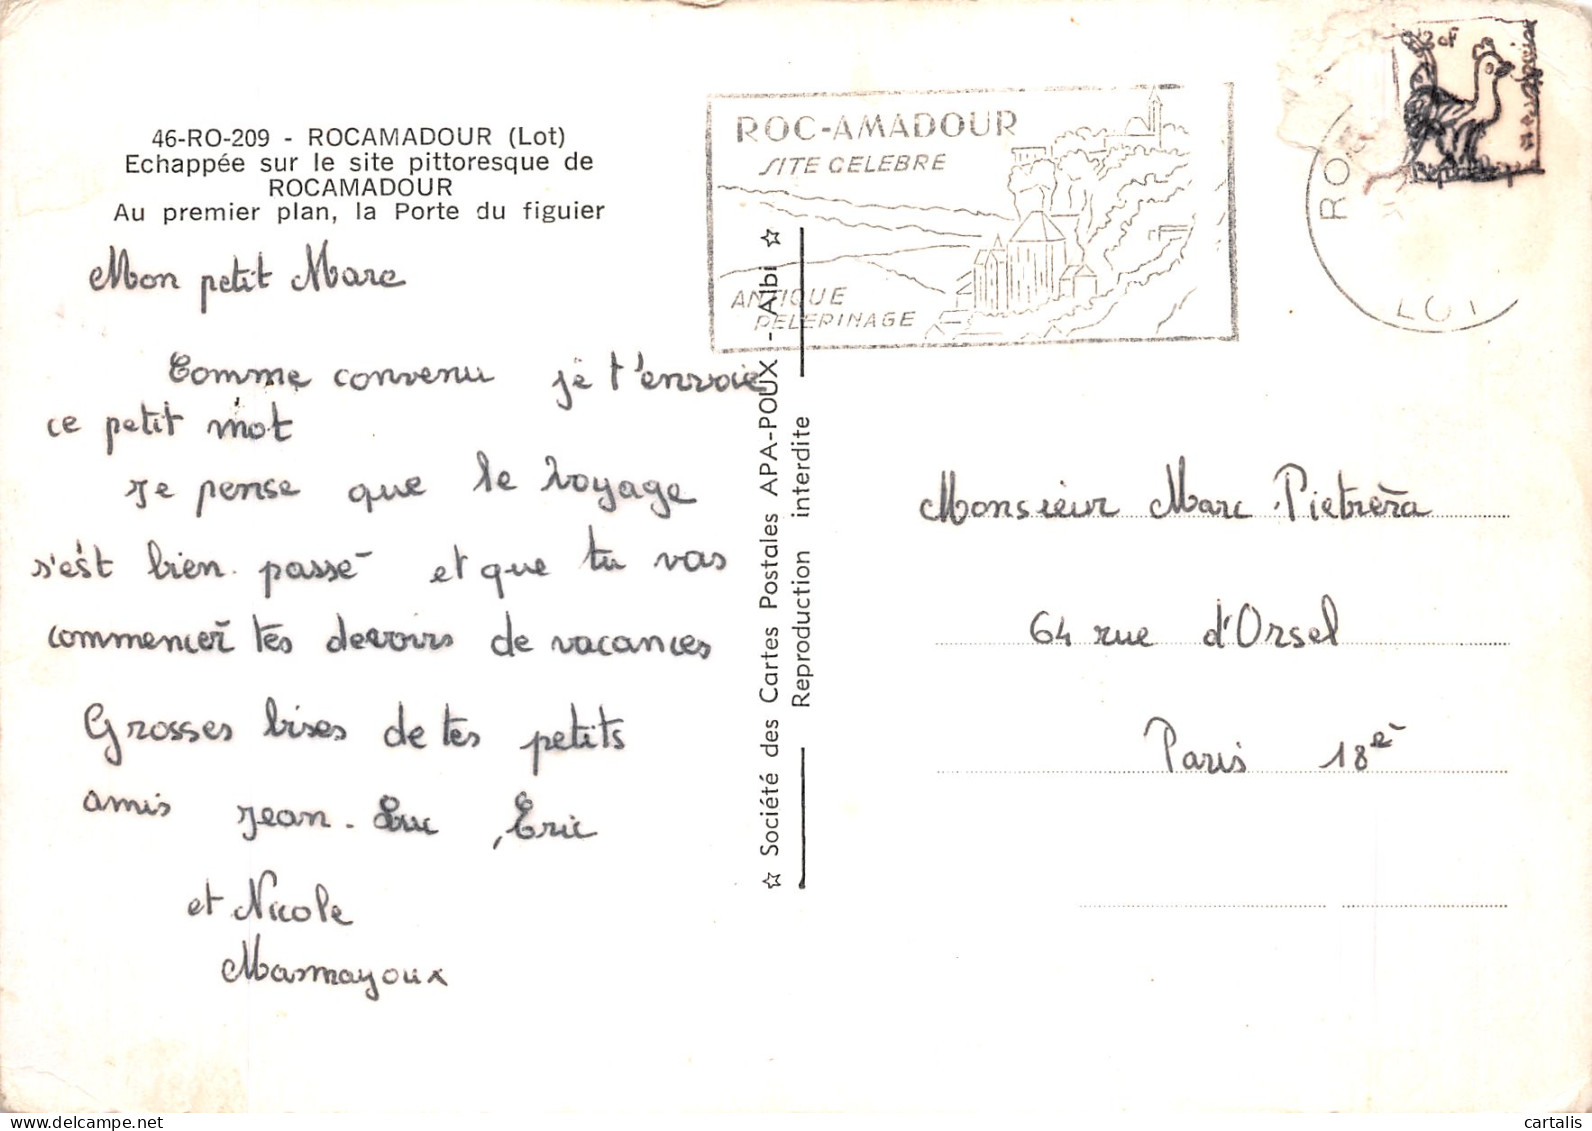 46-RO-209 - ROCAMADOUR (Lot)
Echappée sur le site pittoresque de
ROCAMADOUR
Au premier plan, la Porte du figuier
Mon petit Marc
Comme convenu je t'envoie
ce petit mot
Je pense que le voyage
s'est bien passé et que tu vas
commencer tes devoirs de vacances
Grosses bises de tes petits
amis Jean-Luc, Eric
et Nicole
Masmayoux
ROC-AMADOUR
SITE CELEBRE
ANTIQUE
PELERINAGE
☆ Société des Cartes Postales APA-POUX - Albi ☆
Reproduction interdite
LOT
Monsieur Marc Pietrera
64 rue d'Orsel
Paris 18è
delcampe.net
cartalis